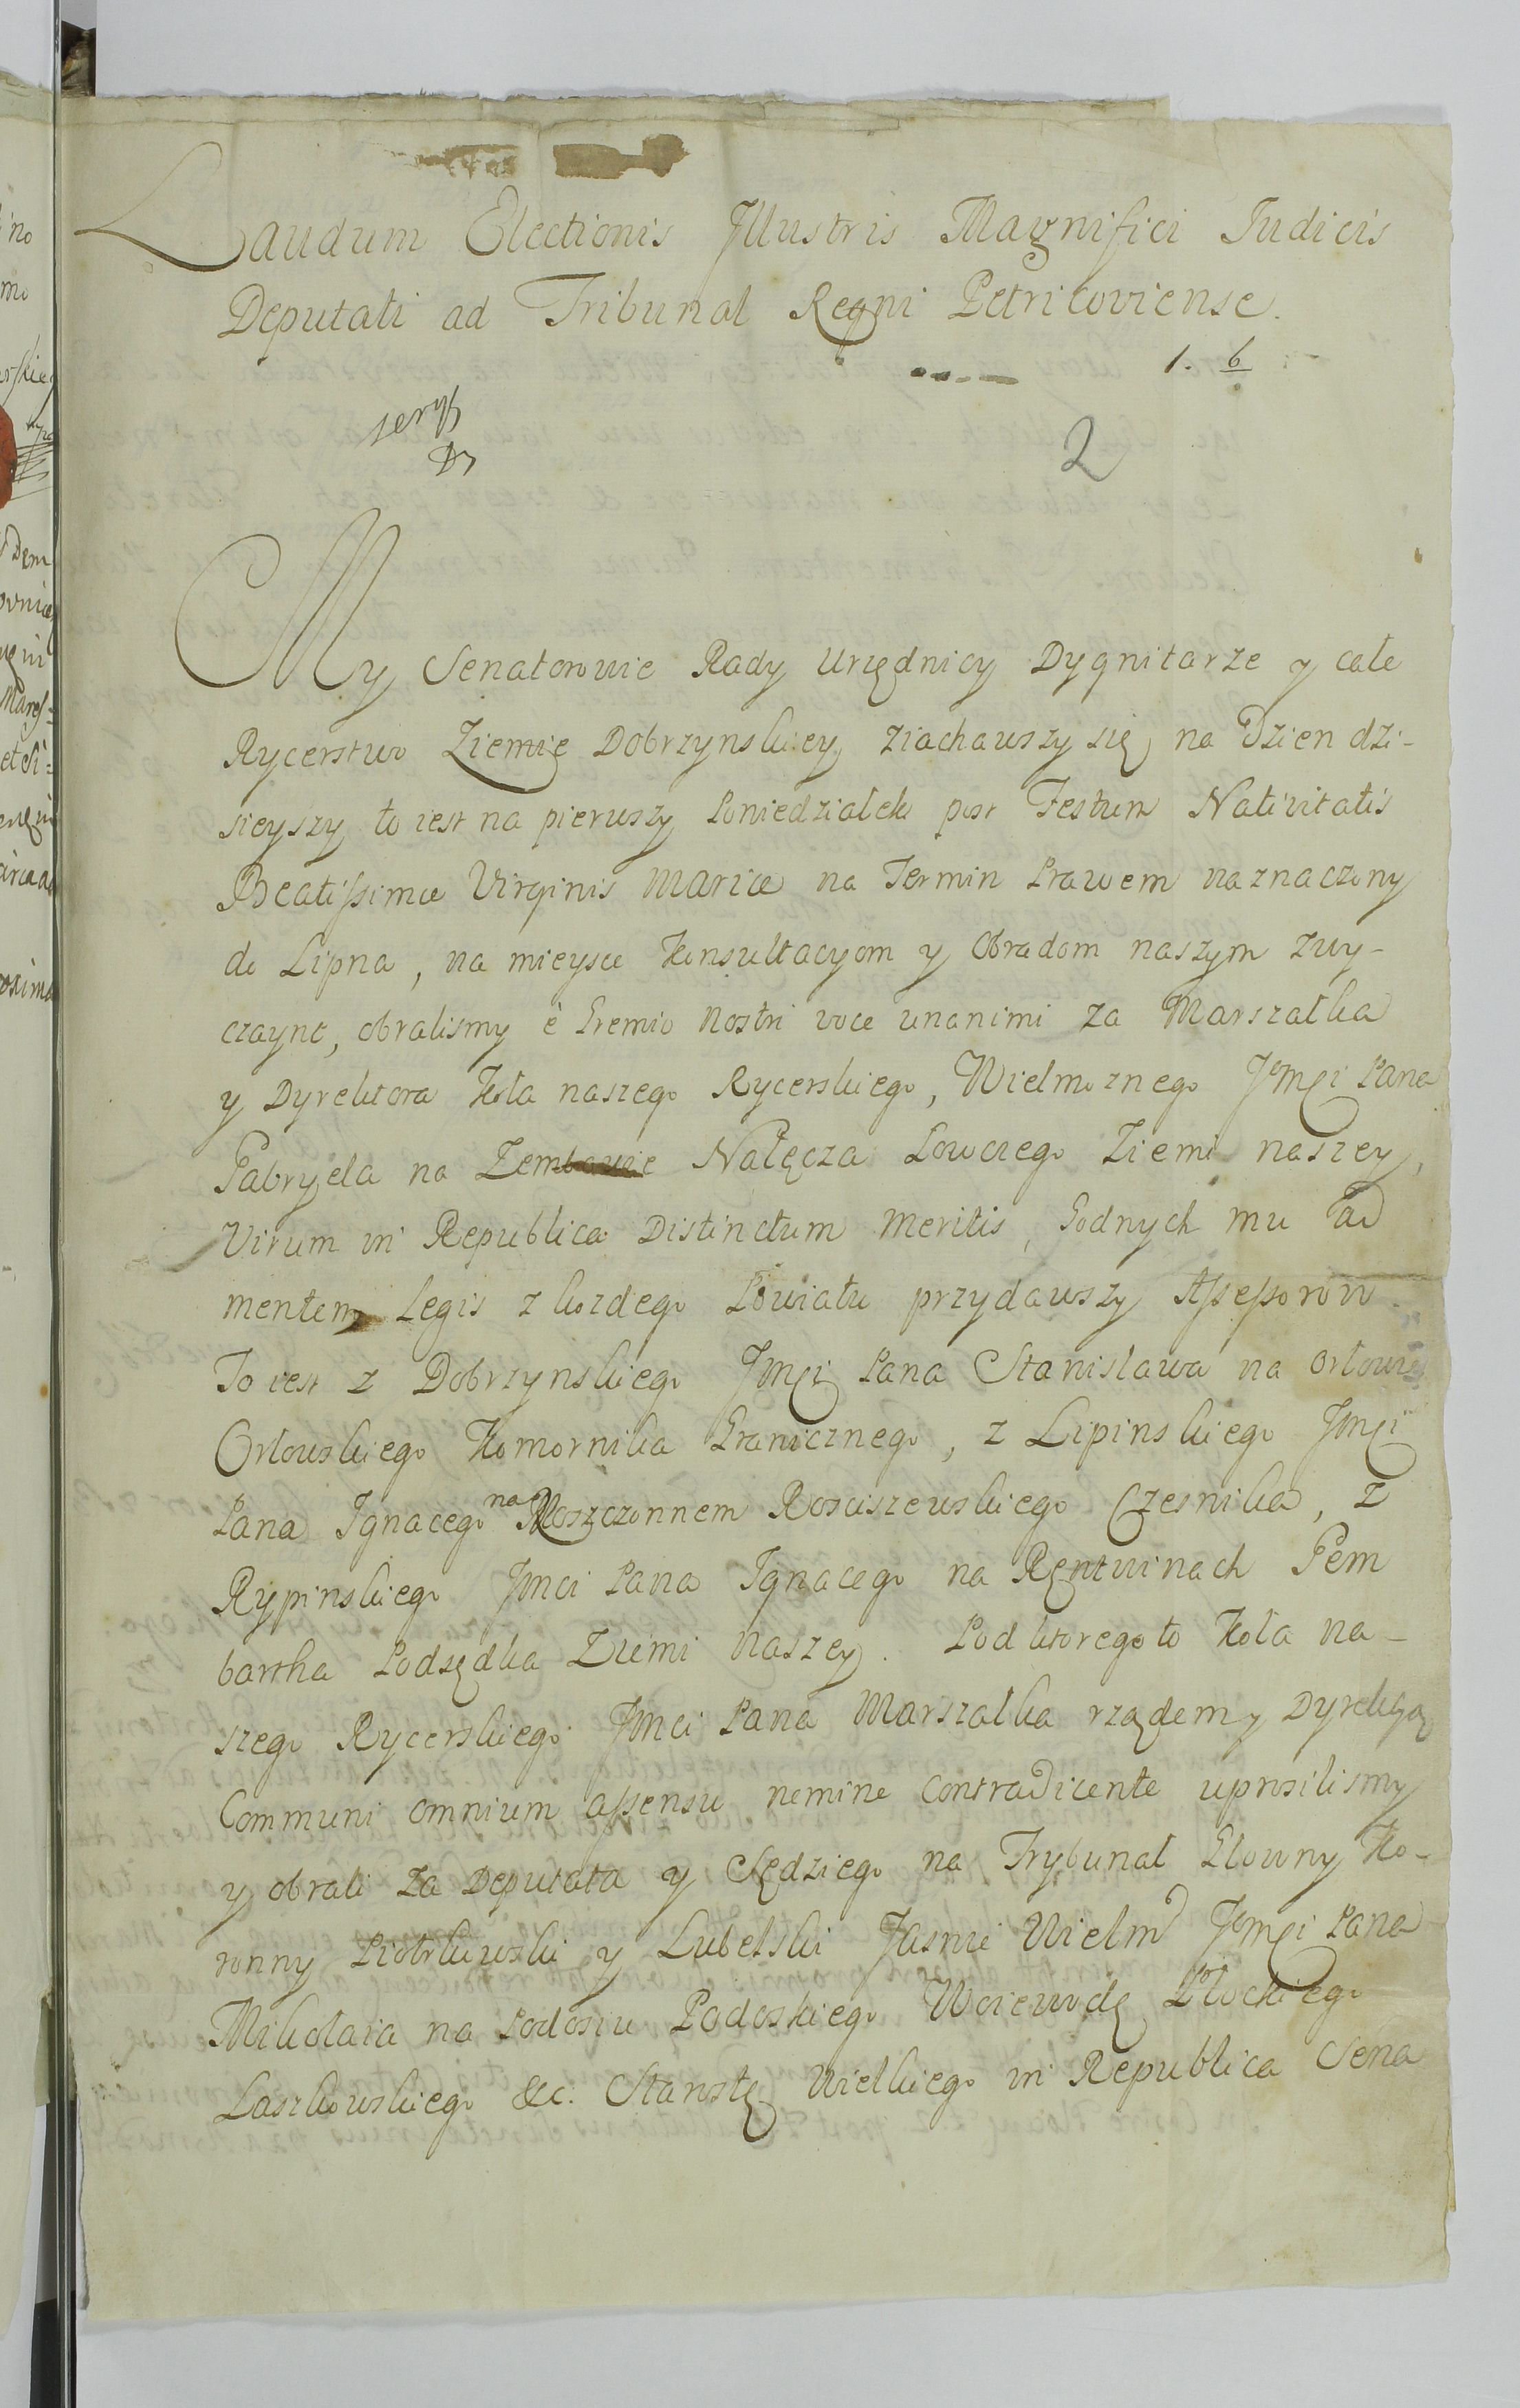 Laudum Electionis Jllustris Magnifici Judicis
Deputati ad Tribunal Regni Petricoviense.
1. 6
2
My Senatorowie Rady Urzędnicy Dygnitarze y całe
Rycerstwo Ziemie Dobrzynskiey ziachawszy się na Dzien dzi-
sieyszy to iest na pierwszy Poniedziałek post Festum Nativitatis
Beatissimæ Virginis Mariæ na Termin Prawem naznaczony
do Lipna, na mieysce Konsultacyom y Obradom naszym zwy-
czayne, obralismy è Gremio Nostri voce unanimi za Marszałka
y Dyrektora Koła naszego Rycerskiego, Wielmoznego Jmci Pana
Gabryela na Zembowie Nałęcza Łowczego Ziemi naszey,
Virum in Republica Distinctum meritis, Godnych mu ad
mentem Legis z kozdego Powiatu przydawszy Assessorow
To iest z Dobrzynskiego Jmci Pana Stanisława na Orłowie
Orłowskiego Komornika Granicznego, z Lipinskiego Jmci
Pana Ignacego na Moszczonnem Rosciszewskiego Czesnika, z
Rypinskiego Jmci Pana Ignacego na Rętwinach Pem
bartha Podsędka Ziemi naszey. Pod ktorego to Koła na-
szego Rycerskiego Jmci Pana Marszałka rządem y Dyrekcyą
Communi omnium assensu nemine contradicente uprosilismy
y obrali za Deputata y Sędziego na Trybunał Głowny Ko-
ronny Piotrkowski y Lubelski Jasnie Wielmo Jmci Pana
Mikołaia na Podosiu Podoskiego Woiewodę Płockiego
Laszkowskiego &c. Starostę Wielkiego in Republica Sena